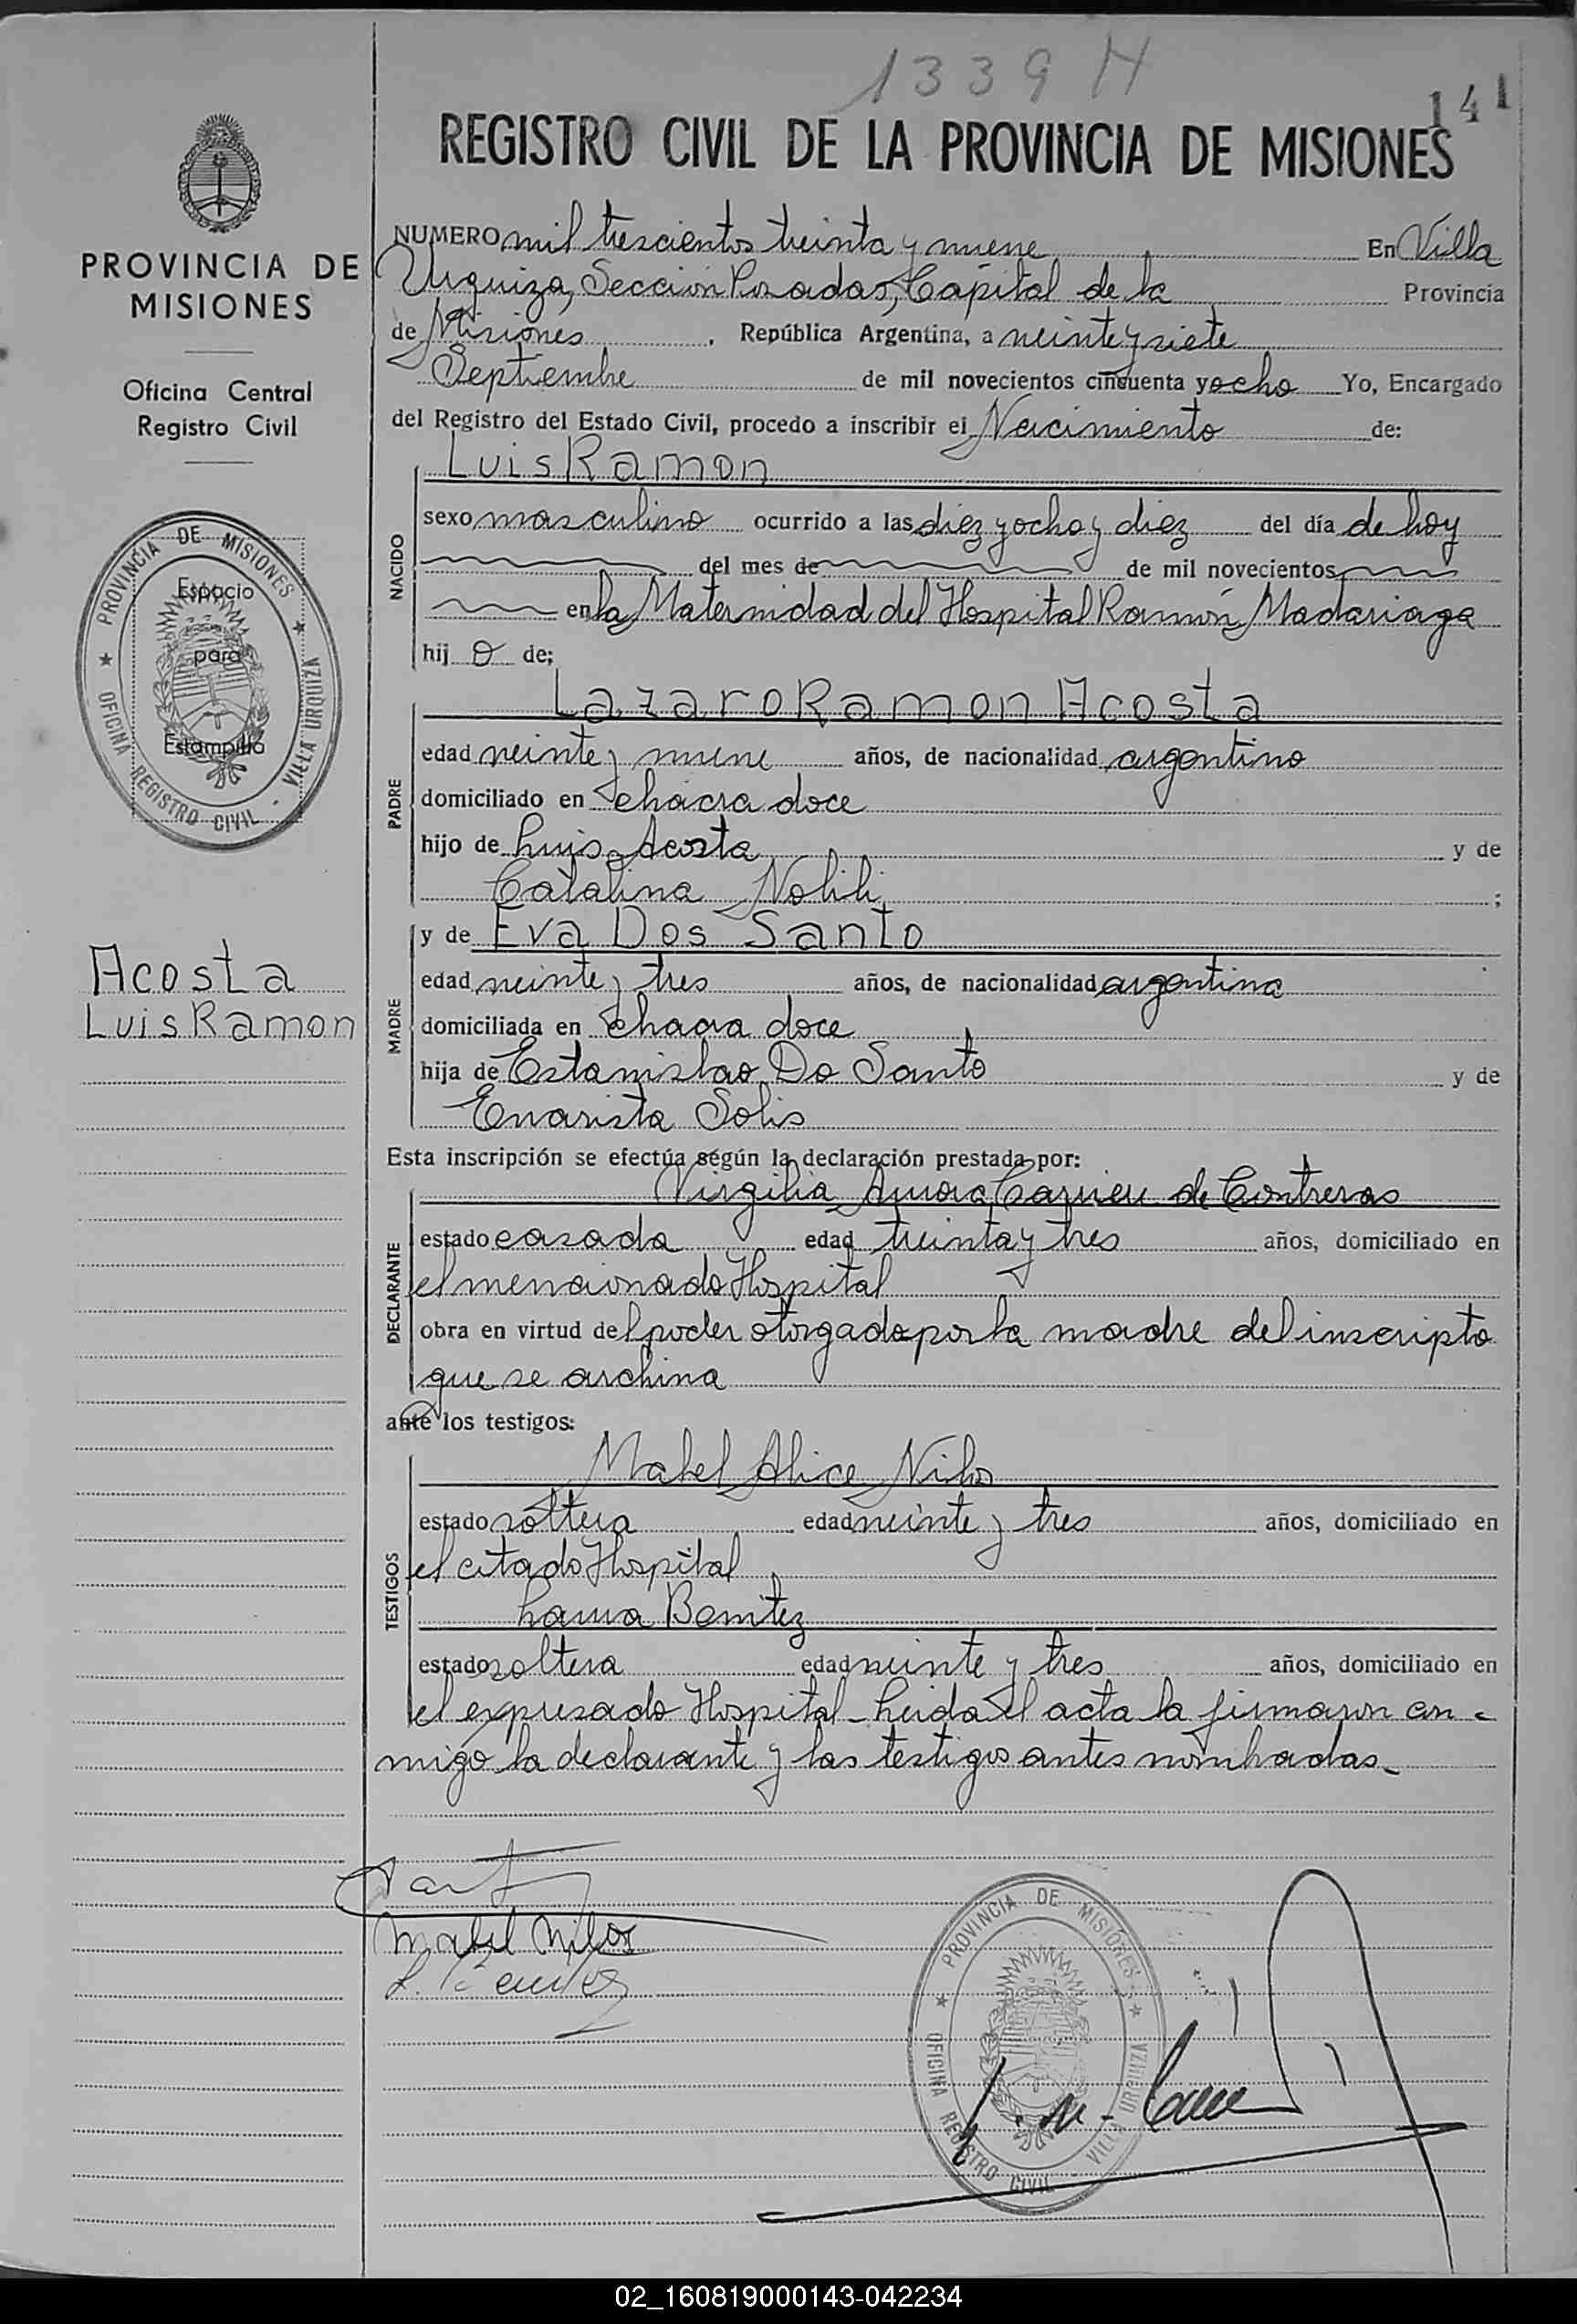 1339 H
141
REGISTRO CIVIL DE LA PROVINCIA DE MISIONES
PROVINCIA DE
MISIONES
Oficina Central
Registro Civil
PROVINCIA DE MISIONES
OFICINA REGISTRO CIVIL - VILLA URQUIZA
Espacio
para
Estampilla
Acosta
Luis Ramon
NUMERO mil trescientos treinta y nueve En Villa
Urquiza, Sección Posadas, Capital de la Provincia
de Misiones, República Argentina, a veinte y siete
Septiembre de mil novecientos cincuenta y ocho Yo, Encargado
del Registro del Estado Civil, procedo a inscribir el Nacimiento de:
NACIDO
Luis Ramon
sexo masculino ocurrido a las diez y ocho y diez del día de hoy
del mes de de mil novecientos
en la Maternidad del Hospital Ramón Madariaga
hij o de:
PADRE
Lazaro Ramon Acosta
edad veinte y nueve años, de nacionalidad argentino
domiciliado en chacra doce
hijo de Luis Acosta y de
Catalina ;
MADRE
y de Eva Dos Santo
edad veinte y tres años, de nacionalidad argentina
domiciliada en chacra doce
hija de Estanislao Do Santo y de
Evarista Solis
Esta inscripción se efectúa según la declaración prestada por:
DECLARANTE
Virgilia de Contreras
estado casada edad treinta y tres años, domiciliado en
el mencionado Hospital
obra en virtud del poder otorgado por la madre del inscripto
que se archiva
ante los testigos:
TESTIGOS
Mabel Alice
estado soltera edad veinte y tres años, domiciliado en
el citado Hospital
Laura Benitez
estado soltera edad veinte y tres años, domiciliado en
el expresado Hospital - Leida el acta la firmaron con -
migo la declarante y las testigos antes nombradas -
Mabel
PROVINCIA DE MISIONES
OFICINA REGISTRO CIVIL VILLA URQUIZA
02_160819000143-042234